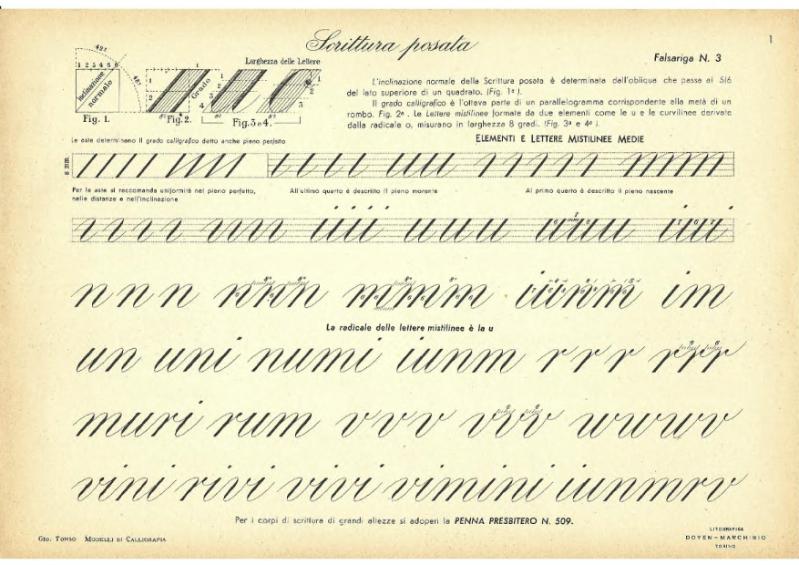 1
Scrittura posata
Falsariga N. 3
45º
45º
1 2 3 4 5 6
inclinazione
normale
Fig. 1.
1
2
Grado
Fig.2.
Larghezza delle Lettere
1
2
3
4
Fig.3 e 4.
L'inclinazione normale della Scrittura posata è determinata dall'oblique che passa ai 5/6
del lato superiore di un quadrato. (Fig. 1ª).
Il grado calligrafico è l'ottava parte di un parallelogramma corrispondente alla metà di un
rombo. Fig. 2ª. Le Lettere mistilinee formate da due elementi come le u e le curvilinee derivate
dalla radicale o, misurano in larghezza 8 gradi. (Fig. 3ª e 4ª).
Le aste determinano il grado calligrafico detto anche pieno perfetto
ELEMENTI E LETTERE MISTILINEE MEDIE
8 mm.
Per le aste si raccomanda uniformità nel pieno perfetto,
nelle distanze e nell'inclinazione
All'ultimo quarto è descritto il pieno morente
Al primo quarto è descritto il pieno nascente
n n n nnn mmm iunm im
La radicale delle lettere mistilinee è la u
un uni numi iunm r r r rrr
muri rum v v v vvv wwwv
vini rivi vivi vimini iunmrv
Per i corpi di scrittura di grandi altezze si adoperi la PENNA PRESBITERO N. 509.
GEO. TONSO MODELLI DI CALLIGRAFIA
LITOGRAFICA
DOYEN-MARCHISIO
TORINO